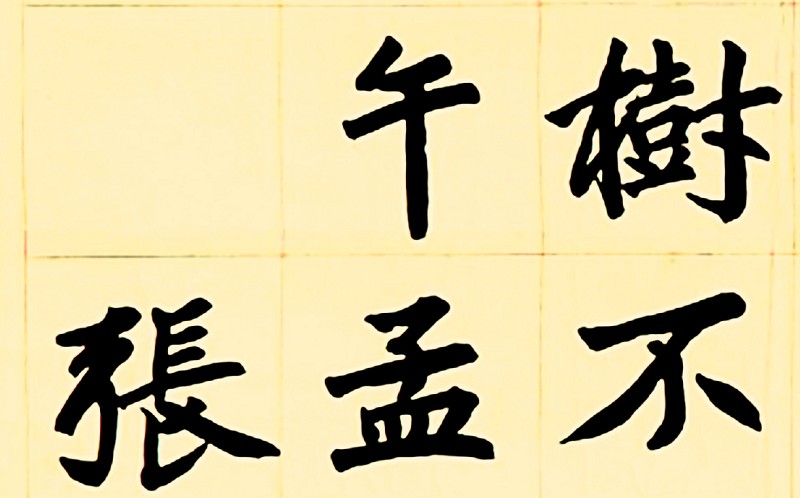 樹不
午孟
張